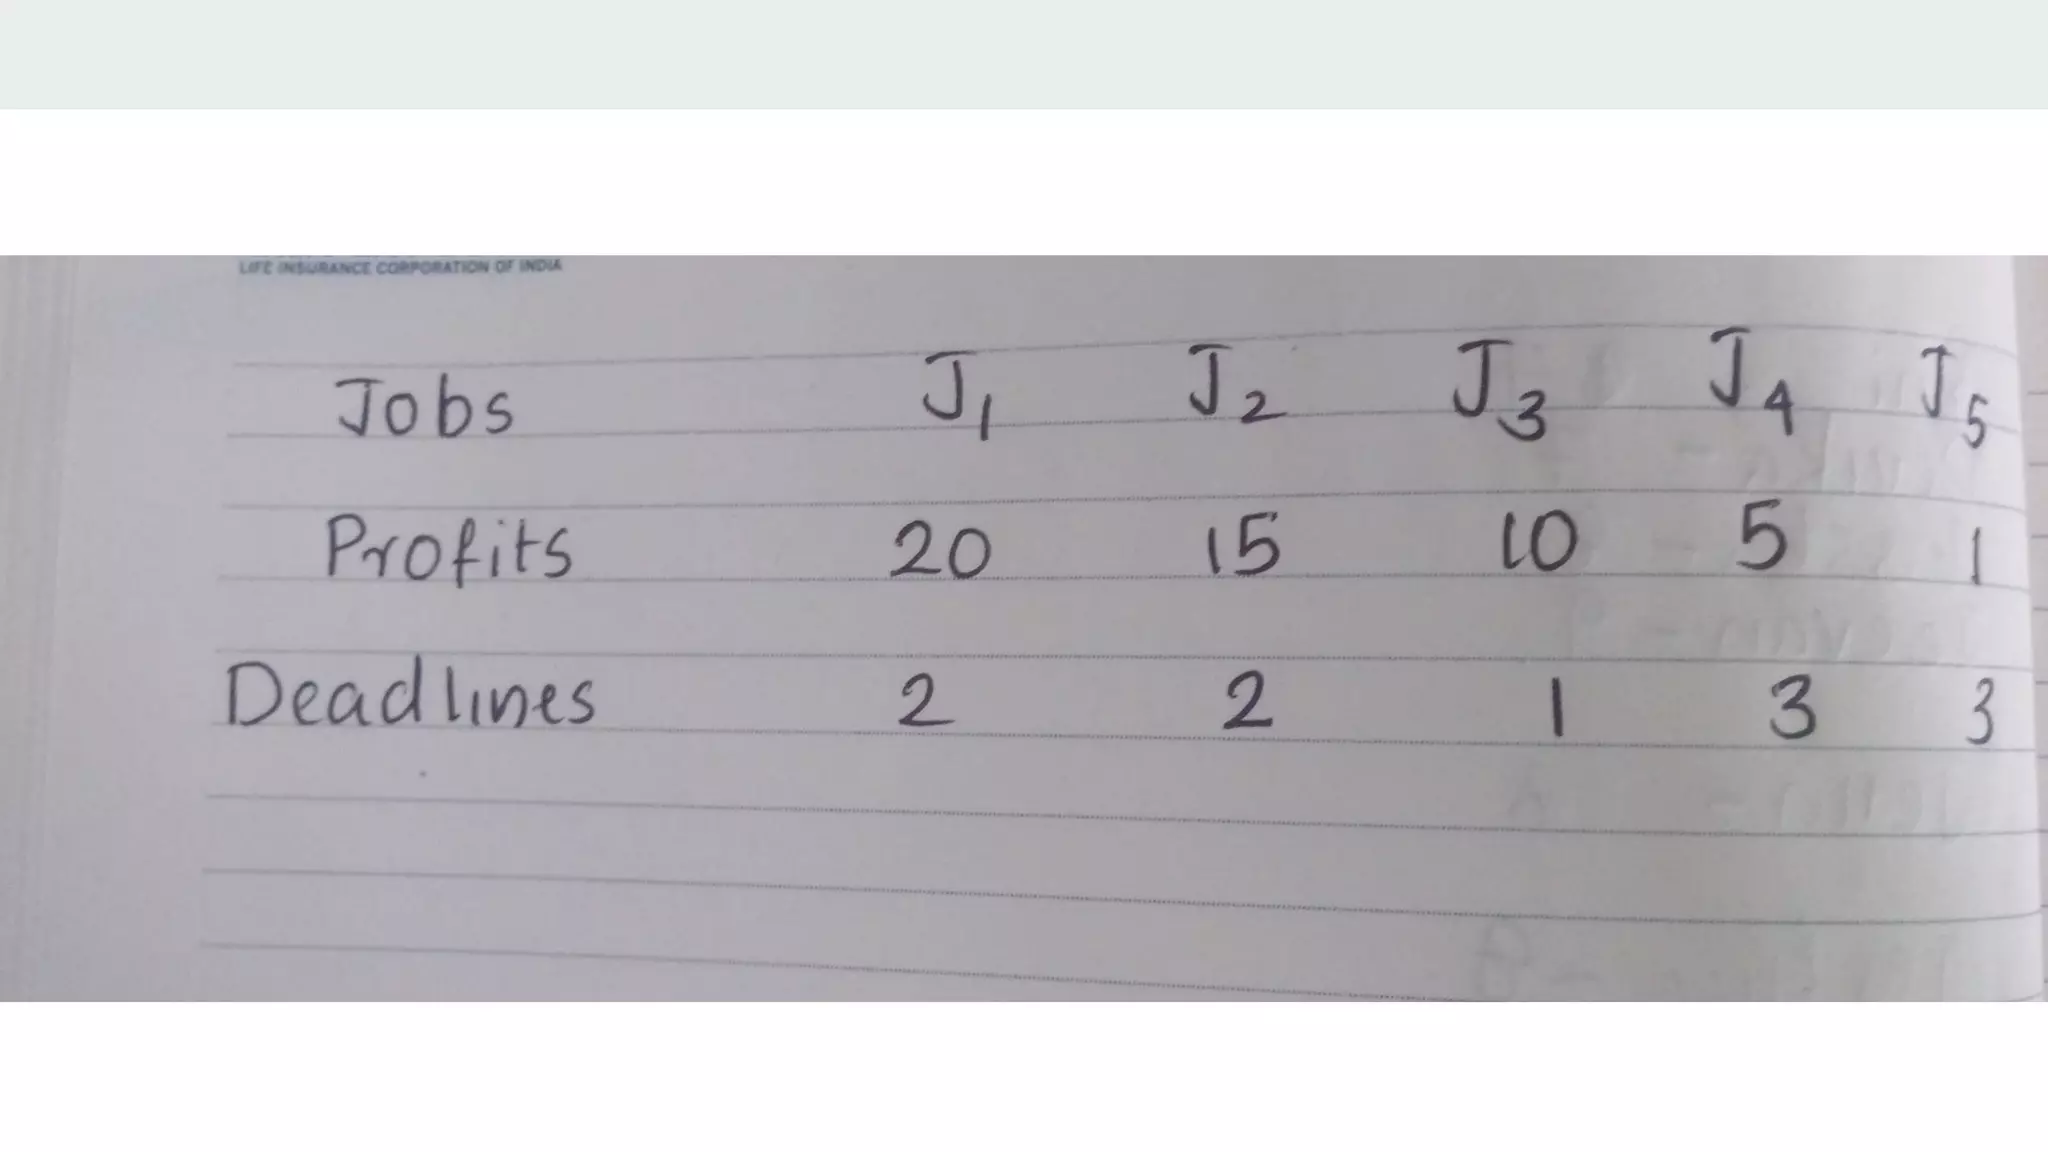 LIFE INSURANCE CORPORATION OF INDIA
Jobs J1 J2 J3 J4 J5
Profits 20 15 10 5 1
Deadlines 2 2 1 3 3